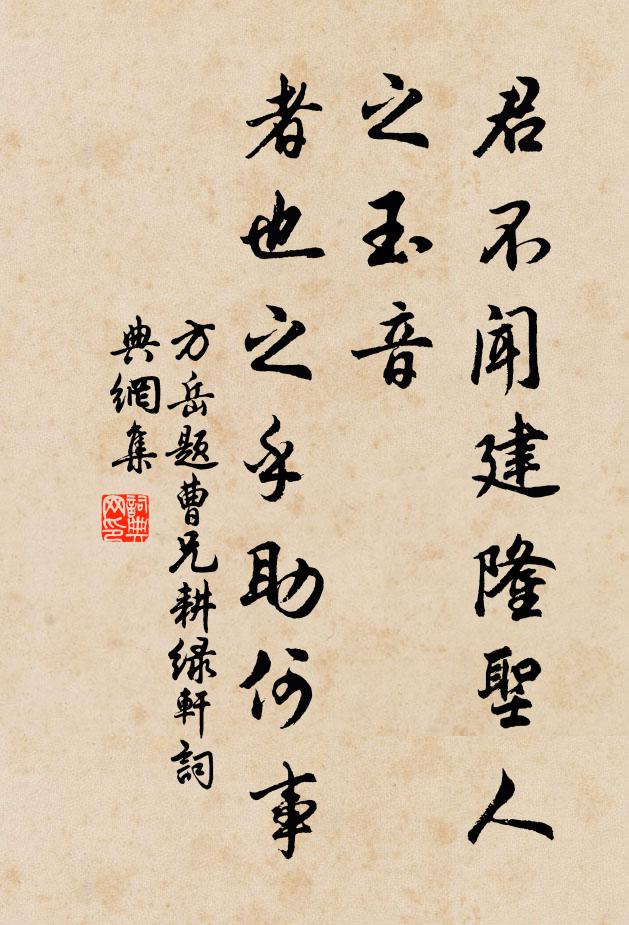 君不闻建隆聖人
之玉音
者也之乎助何事
方岳题曹兄耕绿軒詞
典網集
詞典
网印